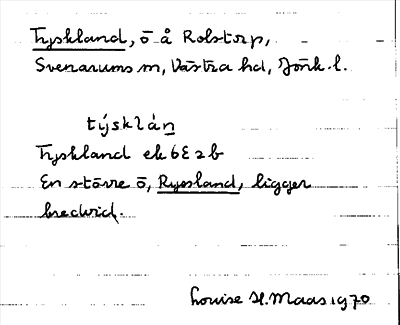 Tyskland, ö å Rolstorp,
Svenarums sn, Västra hd, Jönk. l.
týsklán
Tyskland ek 6E2b
En större ö, Ryssland, ligger
bredvid.
Louise H. Maas 1970